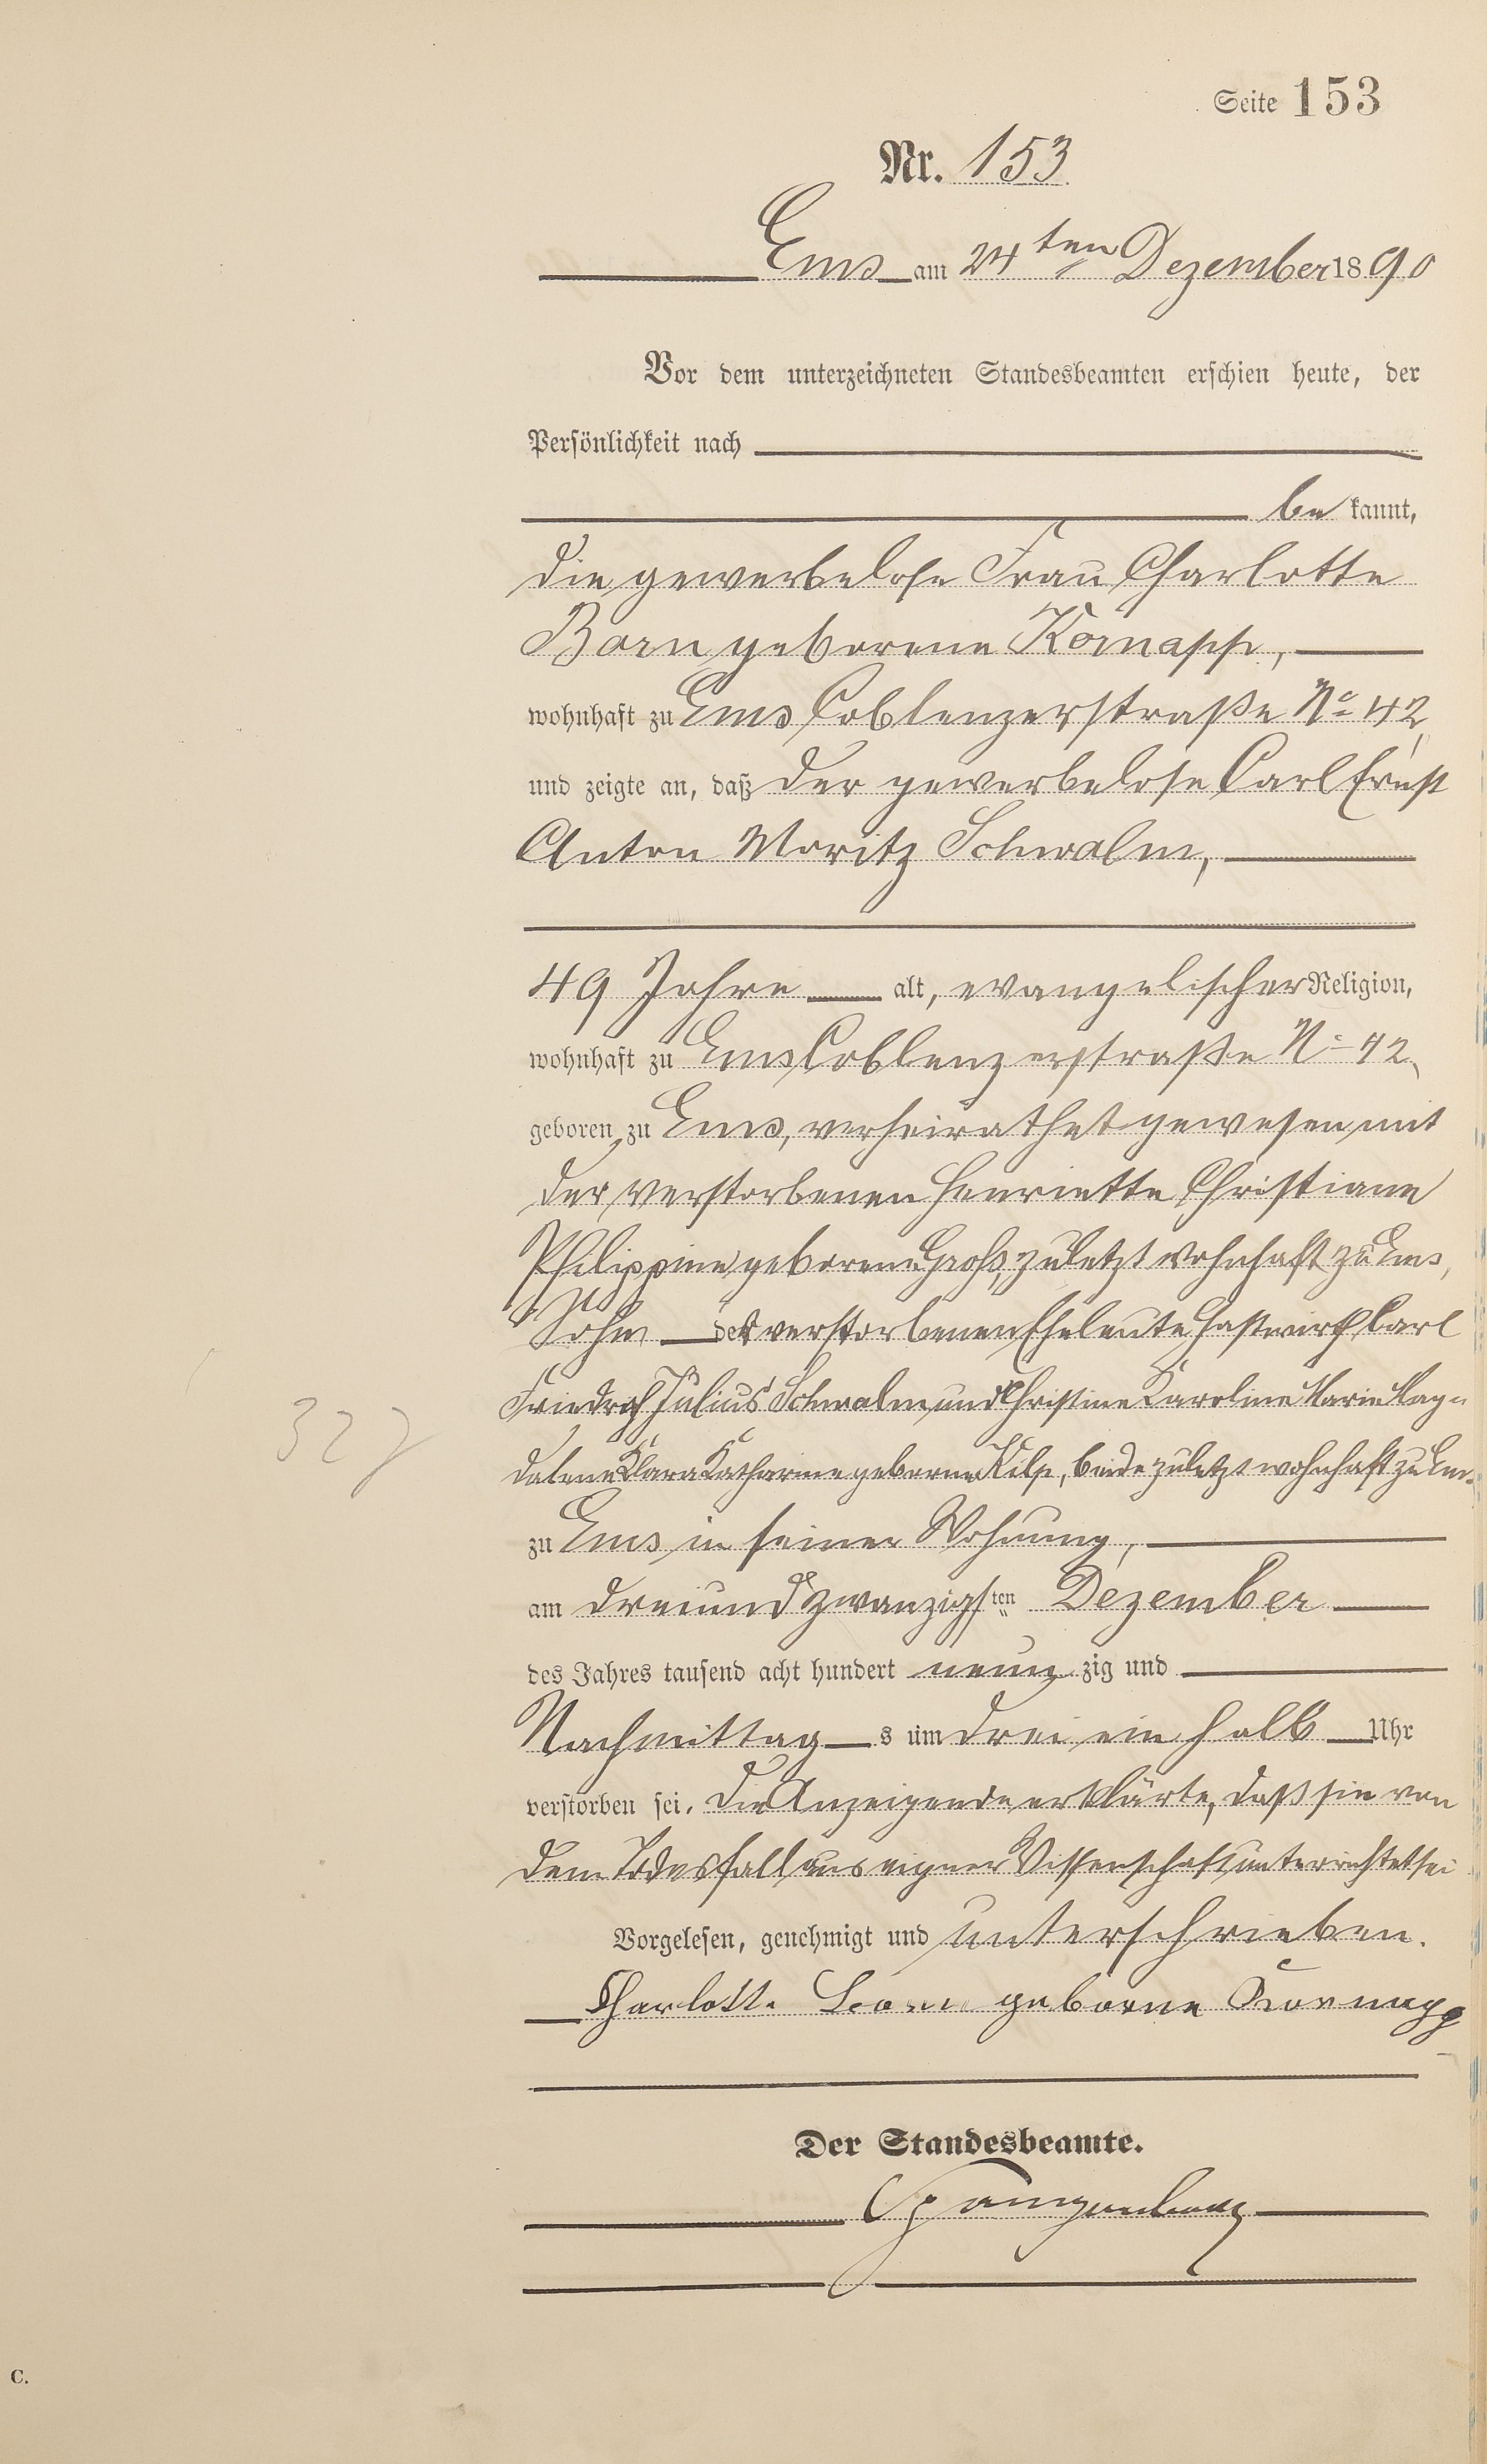 Seite 153
Nr. 153
Ems am 24ten Dezember 1890
Vor dem unterzeichneten Standesbeamten erschien heute, der
Persönlichkeit nach
be kannt,
die gewerbelose Frau Charlotte
Born geborene Kornapp,
wohnhaft zu Ems Coblenzerstraße No 42,
und zeigte an, daß der gewerbelose Carl Ernst
Anton Moritz Schwalm,
49 Jahre alt, evangelischer Religion,
wohnhaft zu Ems Coblenzerstraße No 42,
geboren zu Ems, verheirathet gewesen mit
der verstorbenen Henriette Christiane
Philippine geborene Groß, zuletzt wohnhaft zu Ems,
Sohn der verstorbenen Eheleute Gastwirth Carl
Friedrich Julius Schwalm und Christine Karoline Marie Mag=
327
dalene Klara Katharine geborene Kilp, beide zuletzt wohnhaft zu Ems.
zu Ems in seiner Wohnung,
am dreiundzwanzigsten Dezember
des Jahres tausend acht hundert neunzig und
Nachmittags um drei ein halb Uhr
verstorben sei. Die Anzeigende erklärte, daß sie von
dem Todesfall aus eigner Wissenschaft unterrichtet sei
Vorgelesen, genehmigt und unterschrieben.
Charlotte Born geborne Kornapp
Der Standesbeamte.
Spangenberg
C.